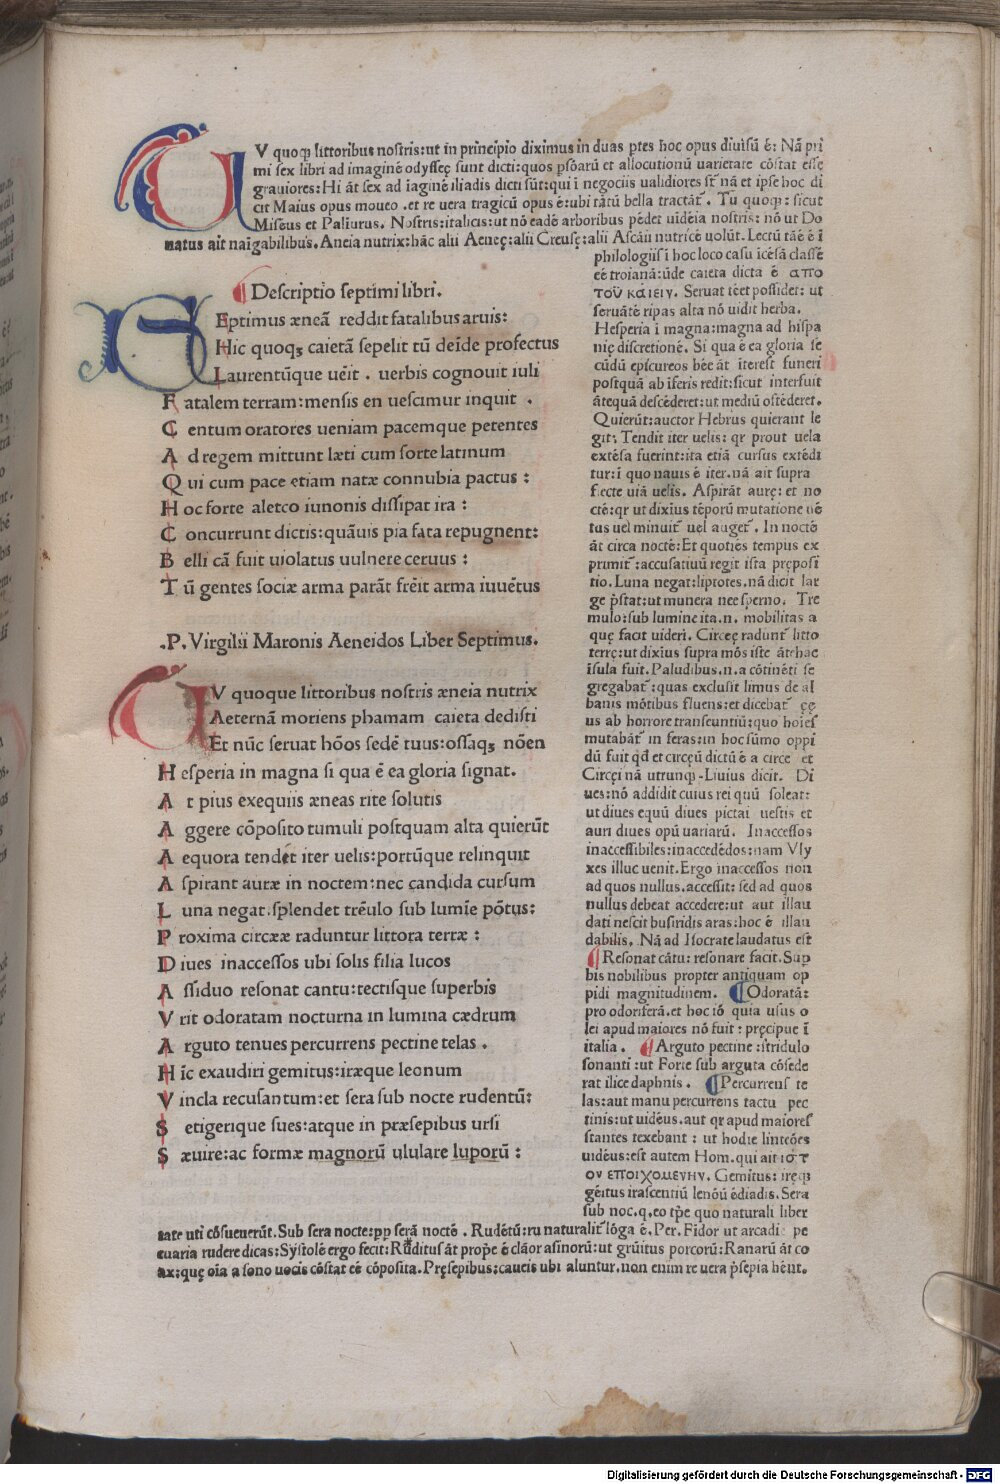 V quoqꝫ littoribus nostris:ut in principio diximus in duas ptes hoc opus diuisū ē: Nā pri
mi sex libri ad imaginē odysseę sunt dicti:quos psōarū et allocutionū uarietate cōstat esse
grauiores:Hi āt sex ad iaginē iliadis dicti sūt:qui ī negociis ualidiores st̄ nā et ipse hoc di
cit Maius opus moueo .et re uera tragicū opus ē:ubi tātū bella tractāt̄. Tu quoqꝫ: sicut
Misēus et Paliurus. Nostris:italicis:ut nō eadē arboribus pēdet uidēia nostris: nō ut Do
natus ait nauigabilibus. Aneia nutrix:hāc alii Aeneę:alii Creusę:alii Ascāii nutricē uolūt. Lectū tāē ē ī
philologiis ī hoc loco casu icēsā classē
eē troianā:ūde caieta dicta ē απο
του καιειν. Seruat tēet possidet: ut
seruātē ripas alta nō uidit herba.
Hesperia ī magna:magna ad hispa
nię discretionē. Si qua ē ea gloria se
cūdū epicureos hęc āt īterest funeri
postquā ab īferis redit:sicut interfuit
ātequā descēderet:ut mediū ostēderet.
Quierūt:auctor Hebrus quierant le
git: Tendit iter uelis: qr prout uela
extēsa fuerint:ita etiā cursus extēdi
tur:ī quo nauis ē iter.nā ait supra
flecte uiā uelis. Aspirāt aurę: et no
ctē:qr ut dixius tēporū mutatione uē
tus uel minuit̄ uel auget̄. In noctē
āt circa noctē:Et quotiēs tempus ex
primit̄:accusatiuū regit ista pręposi
tio. Luna negat:liptotes.nā dicit lar
ge p̄stat:ut munera nec sperno. Tre
mulo:sub lumine ita.n. mobilitas a
quę facit uideri. Circeę radunt̄ litto
terrę:ut dixius supra mōs iste ātehac
īsula fuit. Paludibus.n.a cōtinēti se
gregabat̄:quas exclusit limus de al
banis mōtibus fluens:et dicebat̄ ęę
us ab horrore transeuntiū:quo hoīes
mutabāt̄ in feras:in hoc sūmo oppi
dū fuit qđ et circęū dictū ē a circe et
Circęi nā utrunqꝫ Liuius dicit. Di
ues:nō addidit cuius rei quū soleat:
ut diues equū diues pictai uestis et
auri diues opū uariarū. Inaccessos
inaccessibiles:inaccedēdos:nam Vly
xes illuc uenit. Ergo inaccessos non
ad quos nullus.accessit: sed ad quos
nullus debeat accedere:ut aut illau
dati nescit busiridis aras:hoc ē illau
dabilis. Nā ad Isocrate laudatus est
Resonat cātu: resonare facit. Sup
bis nobilibus propter antiquam op
pidi magnitudinem. Odoratā:
pro odoriferā.et hoc iō quia usus o
lei apud maiores nō fuit: pręcipue ī
italia. Arguto pectine:stridulo
sonanti:ut Forte sub arguta cōsede
rat ilice daphnis. Percurrens te
las:aut manu percurrens tactu pec
tinis:ut uidēus.aut qr apud maiores
stantes texebant: ut hodie linteōes
uidēus:est autem Hom.qui ait ιστ
ον εποιχομενην. Gemitus: iręqꝫ
gēitus irascentiū leonū ēdiadis. Sera
sub noc.q.eo tp̄e quo naturali liber
tate uti cōsueuerūt. Sub sera nocte:pp serā noctē. Rudētū:ru naturalit̄ lōga ē. Per. Fidor ut arcadię pe
cuaria rudere dicas:Systolē ergo fecit:Ruditus āt propē ē clāor asinorū:ut grūitus porcorū:Ranarū āt co
ax:quę oīa a sono uocis cōstat eē cōposita. Pręsepibus:caueis ubi aluntur.non enim re uera p̄sepia hēnt.
Descriptio septimi libri.
SEptimus æneā reddit fatalibus aruis:
Hic quoqꝫ caietā sepelit tū deīde profectus
Laurentūque uēit . uerbis cognouit iuli
F atalem terram:mensis en uescimur inquit .
C entum oratores ueniam pacemque petentes
A d regem mittunt læti cum sorte latinum
Q ui cum pace etiam natæ connubia pactus :
H oc forte aletco iunonis dissipat ira :
C oncurrunt dictis:quāuis pia fata repugnent:
B elli cā fuit uiolatus uulnere ceruus :
T ū gentes sociæ arma parāt frēit arma iuuētus
.P. Virgilii Maronis Aeneidos Liber Septimus.
TV quoque littoribus nostris æneia nutrix
Aeternā moriens phamam caieta dedisti
Et nūc seruat hōos sedē tuus:ossaqꝫ nōen
H esperia in magna si qua ē ea gloria signat.
A t pius exequiis æneas rite solutis
A ggere cōposito tumuli postquam alta quierūt
A equora tendet iter uelis:portūque relinquit
A spirant auræ in noctem:nec candida cursum
L una negat:splendet trēulo sub lumīe pōtus:
P roxima circææ raduntur littora terræ :
D iues inaccessos ubi solis filia lucos
A ssiduo resonat cantu:tectisque superbis
V rit odoratam nocturna in lumina cædrum
A rguto tenues percurrens pectine telas .
H īc exaudiri gemitus:iræque leonum
V incla recusantum:et sera sub nocte rudentū:
S etigerique sues:atque in præsepibus ursi
S æuire:ac formæ magnorū ululare luporū :
Digitalisierung gefördert durch die Deutsche Forschungsgemeinschaft - DFG